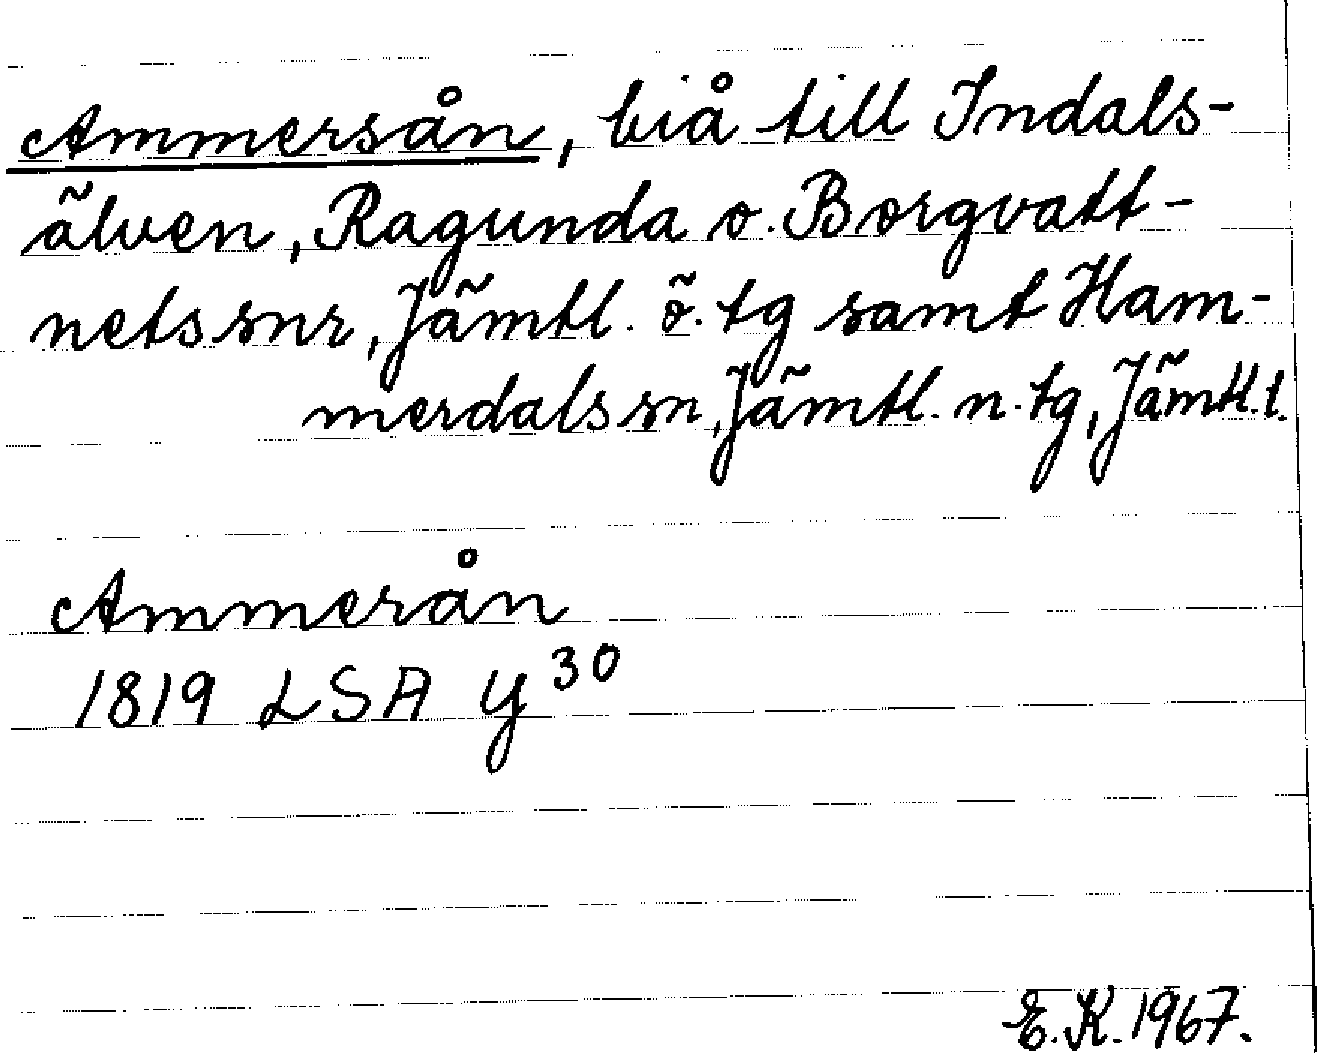 Ammersån, biå till Indals-
älven, Ragunda o. Borgvatt-
nets snr, Jämtl. ö. tg samt Ham-
merdals sn, Jämtl. n. tg, Jämtl. l.
Ammerån
1819 LSA Y 30
E.K. 1967.